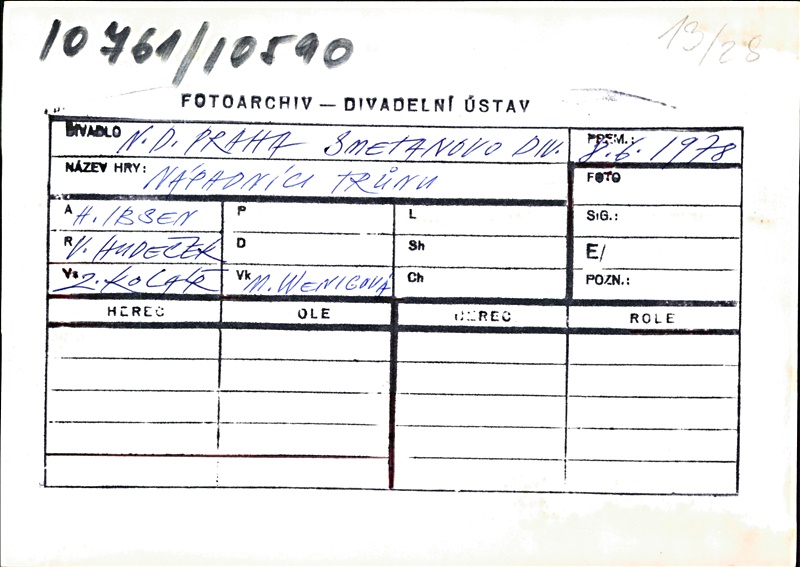 10761/10590
13/28
FOTOARCHIV — DIVADELNÍ ÚSTAV
DIVADLO N.D. PRAHA SMETANOVO DIV.
PREM.: 8.6.1978
NÁZEV HRY: NÁPADNÍCI TRŮNU
FOTO
A H. IBSEN
P
L
SIG.:
R V. HUDEČEK
D
Sh
E/
Vs Z. KOLÁŘ
Vk M. WENIGOVÁ
Ch
POZN.:
HEREC OLE HEREC ROLE